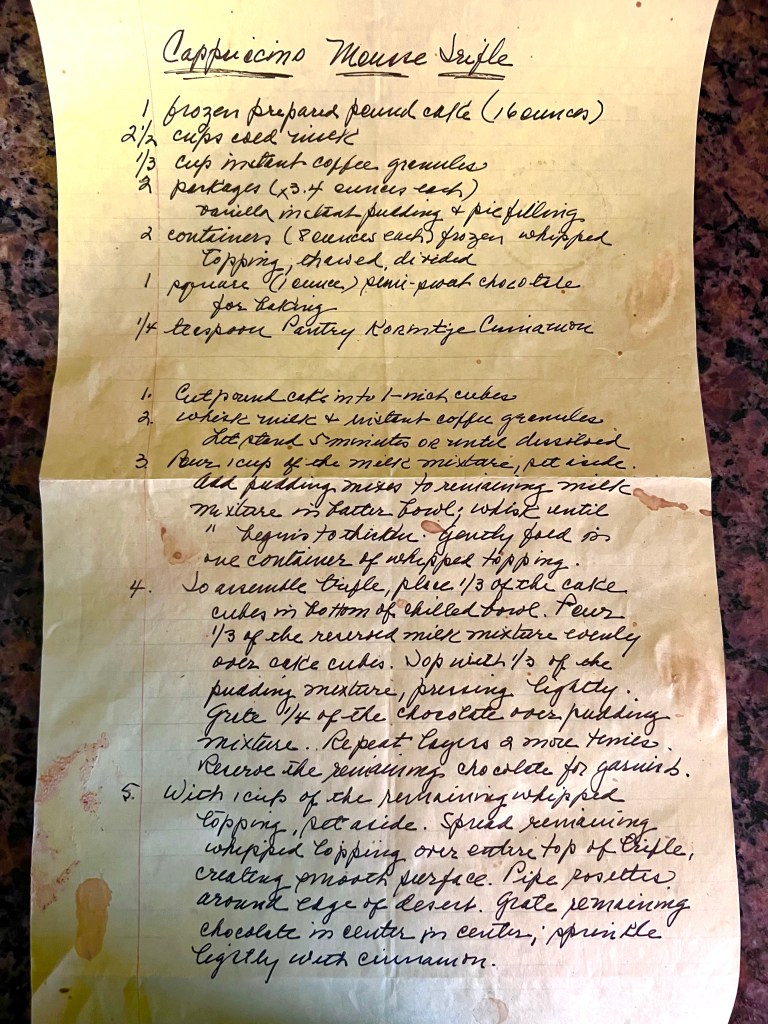 Cappuccino Mousse Trifle
1 frozen prepared pound cake (16 ounces)
2 1/2 cups cold milk
1/3 cup instant coffee granules
2 packages (x3.4 ounces each)
vanilla instant pudding & pie filling
2 containers (8 ounces each) frozen whipped
topping, thawed, divided
1 square (1 ounce) semi-sweet chocolate
for baking
1/4 teaspoon Pantry Korintje Cinnamon
1. Cut pound cake into 1-inch cubes
2. Whisk milk & instant coffee granules
Let stand 5 minutes or until dissolved
3. Pour 1 cup of the milk mixture, set aside.
Add pudding mixes to remaining milk
mixture in batter bowl; whisk until
" begins to thicken. Gently fold in
one container of whipped topping.
4. To assemble trifle, place 1/3 of the cake
cubes in bottom of chilled bowl. Pour
1/3 of the reserved milk mixture evenly
over cake cubes. Top with 1/3 of the
pudding mixture, pressing lightly.
Grate 1/4 of the chocolate over pudding
mixture. Repeat layers 2 more times.
Reserve the remaining chocolate for garnish.
5. With 1 cup of the remaining whipped
topping, set aside. Spread remaining
whipped topping over entire top of trifle,
creating smooth surface. Pipe rosettes
around edge of desert. Grate remaining
chocolate in center in center; sprinkle
lightly with cinnamon.